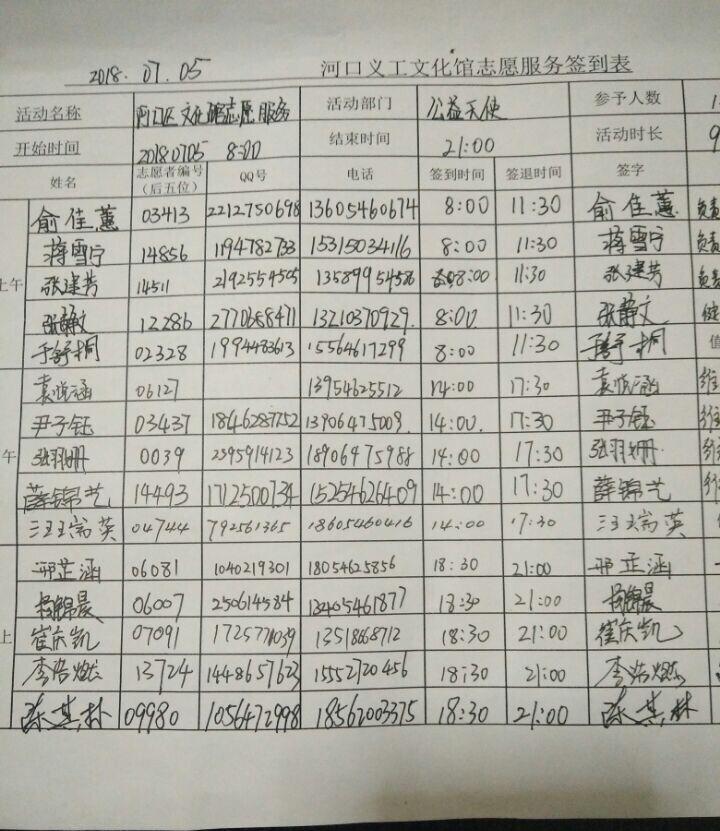 2018. 07. 05 河口义工文化馆志愿服务签到表
活动名称 河口区文化馆志愿服务 活动部门 公益天使 参予人数 1
开始时间 20180705 8:00 结束时间 21:00 活动时长 9
姓名 志愿者编号（后五位） QQ号 电话 签到时间 签退时间 签字
俞佳蕙 03413 2212750698 13605460674 8:00 11:30 俞佳蕙 负责
上午 蒋雪宁 14856 1194782733 15315034116 8:00 11:30 蒋雪宁 负责
张建芳 14511 2192554505 13589954586 8:00 11:30 张建芳 负责
张静文 12286 2770658471 13210370929. 8:00 11:30 张静文
于舒桐 02328 1994483613 15564617299 8:00 11:30 于舒桐 值
袁悦涵 06127 13954625512 14:00 17:30 袁悦涵 维
尹子钰 03437 1846287752 13906475009. 14:00. 17:30 尹子钰 维
午 张羽珊 0039 2395914123 18906475988 14:00 17:30 张羽珊 维
薛锦艺 14493 1712500734 15254626409 14:00 17:30 薛锦艺 维
汪瑞英 04744 792561365 18605460416 14:00 17:30 汪瑞英
邢芷涵 06081 1040219301 18054625856 18:30 21:00 邢芷涵
杨锦晨 06007 250614584 18405461877 18:30 21:00 杨锦晨
上 崔庆凯 07091 1725771039 13518668712 18:30 21:00 崔庆凯
李浩燃 13724 1448657623 15552720456 18:30 21:00 李浩燃
陈其林 09980 1056472998 18562003375 18:30 21:00 陈其林